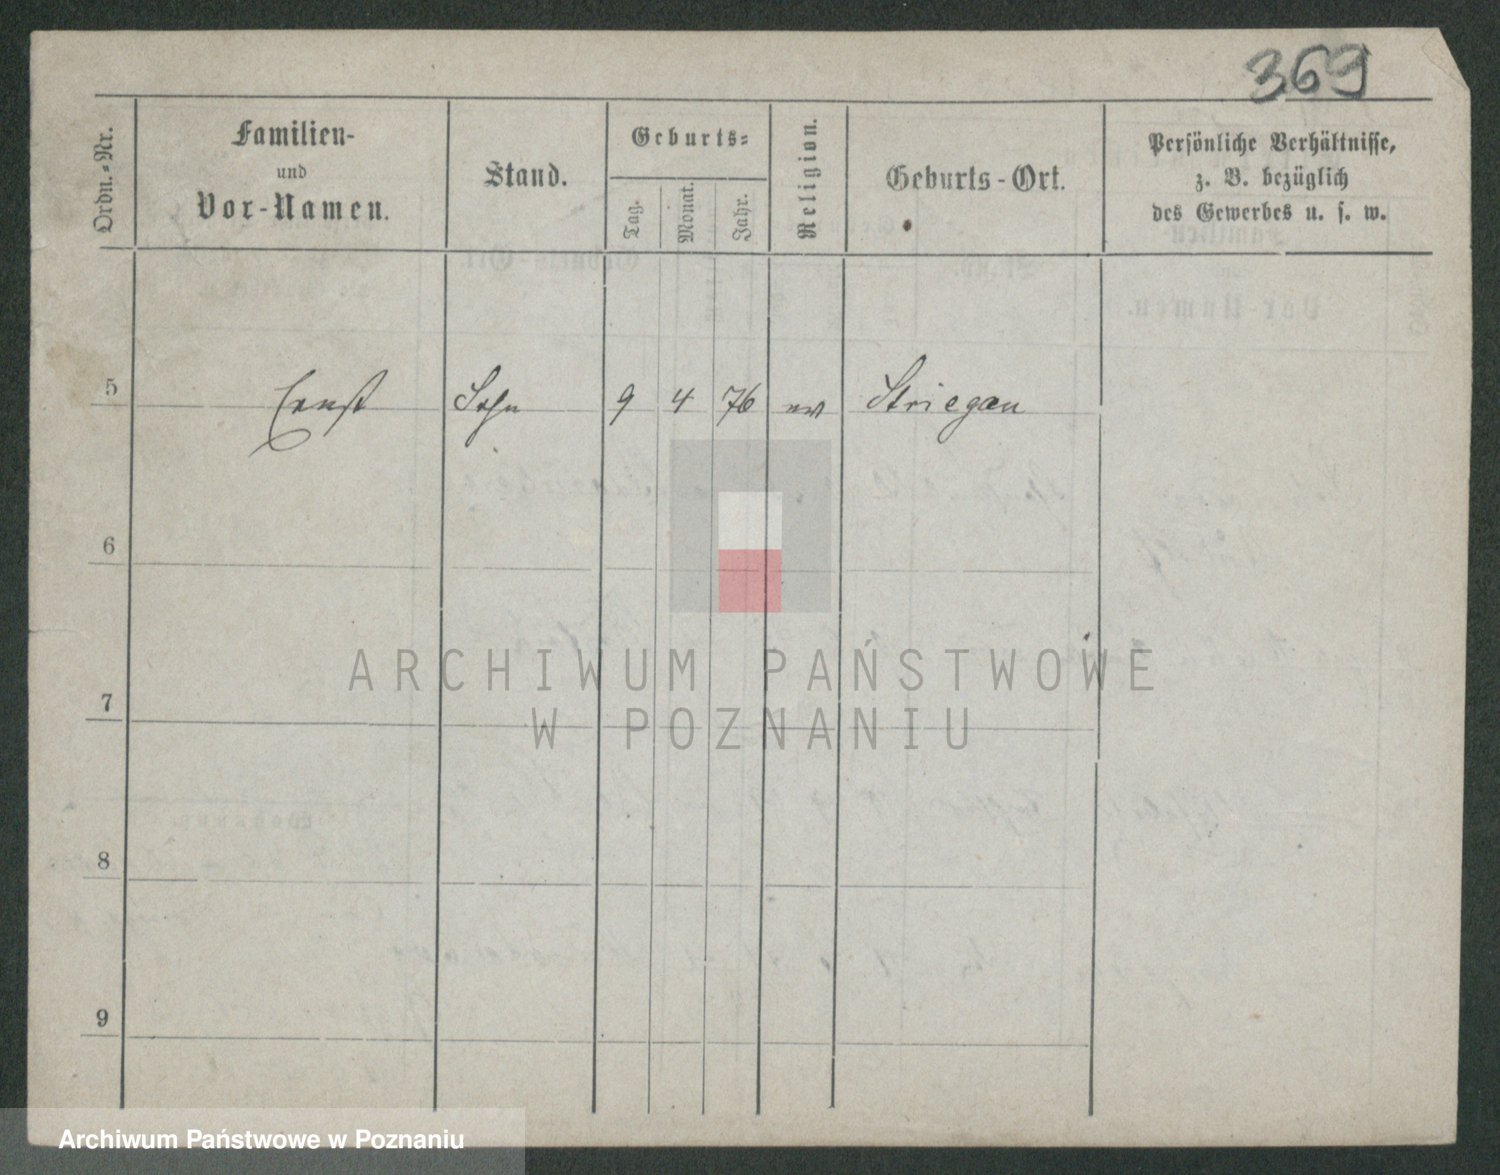 369
Ordn.-Nr.
Familien-
und
Vor-Namen.
Stand.
Geburts-
Tag.
Monat.
Jahr.
Religion.
Geburts-Ort.
Persönliche Verhältnisse,
z. B. bezüglich
des Gewerbes u. s. w.
5 Ernst Sohn 9 4 76 ev Striegau
6
7
8
9
ARCHIWUM PAŃSTWOWE
W POZNANIU
Archiwum Państwowe w Poznaniu